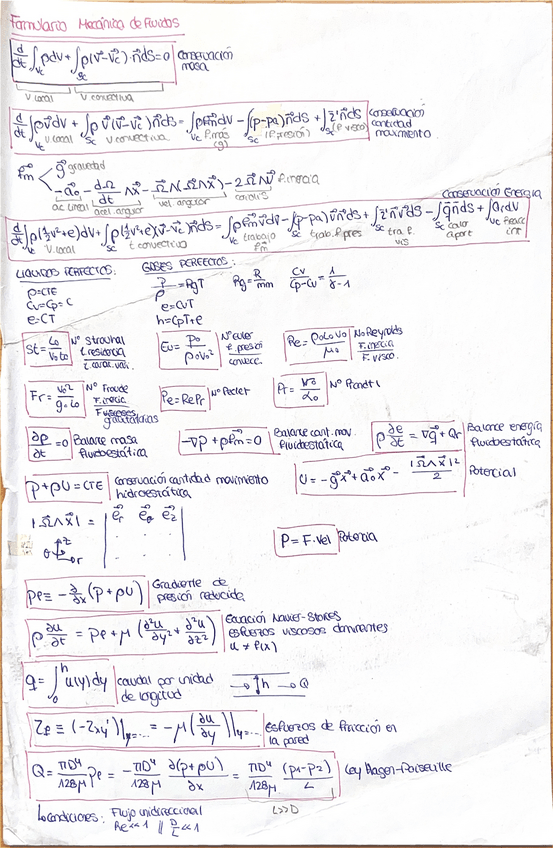 Formulario Mecánica de Fluidos
d/dt ∫_Vc ρdV + ∫_Sc ρ(v⃗-v⃗c)·n⃗ dS = 0 conservación masa
V local V convectiva
d/dt ∫_Vc ρv⃗dV + ∫_Sc ρv⃗(v⃗-v⃗c)n⃗dS = ∫_Vc ρf⃗m dV - ∫_Sc (p-pa)n⃗dS + ∫_Sc τ'n⃗dS conservación cantidad movimiento
V local V convectiva F. más (g) (F. presión) (F. visco)
f⃗m < g⃗ gravedad
-a⃗o - dΩ⃗/dt ∧x⃗ - Ω⃗∧(Ω⃗∧x⃗) - 2Ω⃗∧v⃗ F. inercia
ac. lineal acel. angular vel. angular coriolis
Conservación Energía
d/dt ∫_Vc ρ(½v²+e)dV + ∫_Sc ρ(½v²+e)(v⃗-v⃗c)n⃗dS = ∫_Vc ρf⃗m v⃗dV - ∫_Sc (p-pa)v⃗n⃗dS + ∫_Sc τ'n⃗v⃗dS - ∫_Sc q⃗n⃗dS + ∫_Vc Qr dV
V local t convectiva trabajo fm trab. F. pres tra. F. vis calor aport Reacc int
LIQUIDOS PERFECTOS: GASES PERFECTOS:
ρ=CTE P/ρ = RgT Rg = R/mm Cv/(Cp-Cv) = 1/(γ-1)
Cv=Cp=C e=CvT
e=CT h=CpT+e
St = Lo/(Vo to) Nº Strouhal t. residencia / t. carac. vari. Eu = Po/(ρo Vo²) Nº Euler t. presión / convec. Re = ρo Lo Vo/μo Nº Reynolds F. inercia / F. visco.
Fr = Vo²/(go Lo) Nº Froude F. inercia / Fuerzas gravitatorias Pe = RePr Nº Peclet Pr = νo/αo Nº Prandtl
∂ρ/∂t = 0 Balance masa fluidoestática -∇p + ρf⃗m = 0 Balance cant. mov. fluidoestática ρ ∂e/∂t = ∇q⃗ + Qr Balance energía fluidoestática
P + ρU = CTE conservación cantidad movimiento hidroestática U = -g⃗x⃗ + a⃗o x⃗ - |Ω⃗∧x⃗|²/2 Potencial
|Ω⃗∧x⃗| = | e⃗r e⃗θ e⃗z |
z θ r P = F·Vel Potencia
Pe ≡ -∂/∂x (P + ρU) Gradiente de presión reducida
ρ ∂u/∂t = Pe + μ (∂²u/∂y² + ∂²u/∂z²) Ecuación Navier-Stokes esfuerzos viscosos dominantes u ≠ f(x)
q = ∫₀ʰ u(y)dy caudal por unidad de longitud h → Q
τp ≡ (-τxy')|y=... = -μ(∂u/∂y)|y=... Esfuerzos de fricción en la pared
Q = πD⁴/128μ Pe = -πD⁴/128μ ∂(p+ρU)/∂x = πD⁴/128μ (p1-p2)/L Ley Hagen-Poiseuille
L>>D
↳ Condiciones: Flujo unidireccional
Re<<1 || D/L <<1